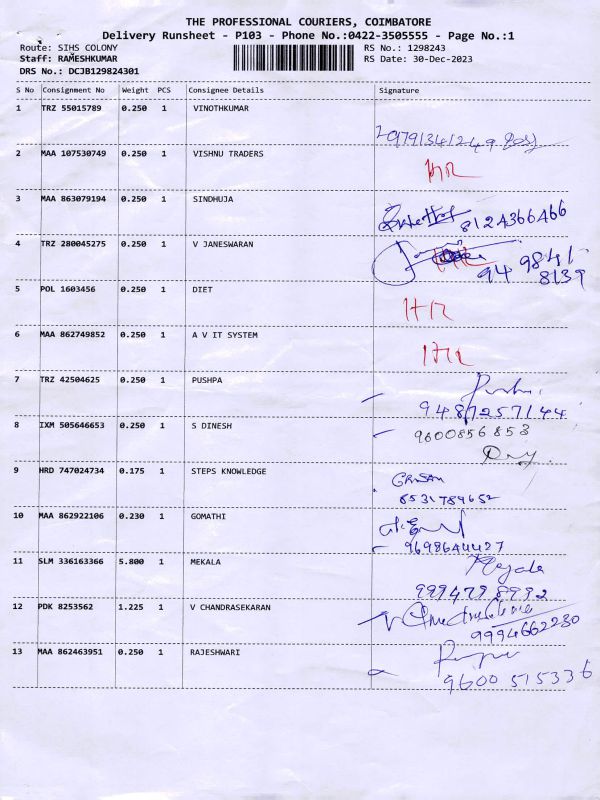 THE PROFESSIONAL COURIERS, COIMBATORE
Delivery Runsheet - P103 - Phone No.:0422-3505555 - Page No.:1
Route: SIHS COLONY RS No.: 1298243
Staff: RAMESHKUMAR RS Date: 30-Dec-2023
DRS No.: DCJB129824301
S No Consignment No Weight PCS Consignee Details Signature
1 TRZ 55015789 0.250 1 VINOTHKUMAR
9791341249
2 MAA 107530749 0.250 1 VISHNU TRADERS
HR
3 MAA 863079194 0.250 1 SINDHUJA
8124366466
4 TRZ 280045275 0.250 1 V JANESWARAN
94 9841
8139
5 POL 1603456 0.250 1 DIET
HR
6 MAA 862749852 0.250 1 A V IT SYSTEM
HR
7 TRZ 42504625 0.250 1 PUSHPA
9487257144
8 IXM 505646653 0.250 1 S DINESH
9600856853
9 HRD 747024734 0.175 1 STEPS KNOWLEDGE
8531789652
10 MAA 862922106 0.230 1 GOMATHI
9698644427
11 SLM 336163366 5.800 1 MEKALA
9994798992
12 PDK 8253562 1.225 1 V CHANDRASEKARAN
9994662230
13 MAA 862463951 0.250 1 RAJESHWARI
9600 515336